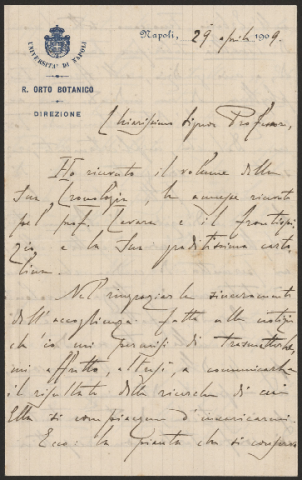 UNIVERSITÀ DI NAPOLI
R. ORTO BOTANICO
DIREZIONE
Napoli, 29 aprile 1909.
Chiarissimo Signor Professore,
Ho ricevuto il volume della
Sua Cronologia, ho
pel prof. Cavara e il frontispi
zio e la Sua graditissima carto
lina.
Nel ringraziarLa sinceramente
dell'accoglienza fatta alle notizie
che io mi permisi di trasmetterle,
mi affretto, altresì, a comunicarLe
il risultato della ricerca di cui
Ella si compiacque d'incaricarmi.
Ecco: la pianta che si conserva